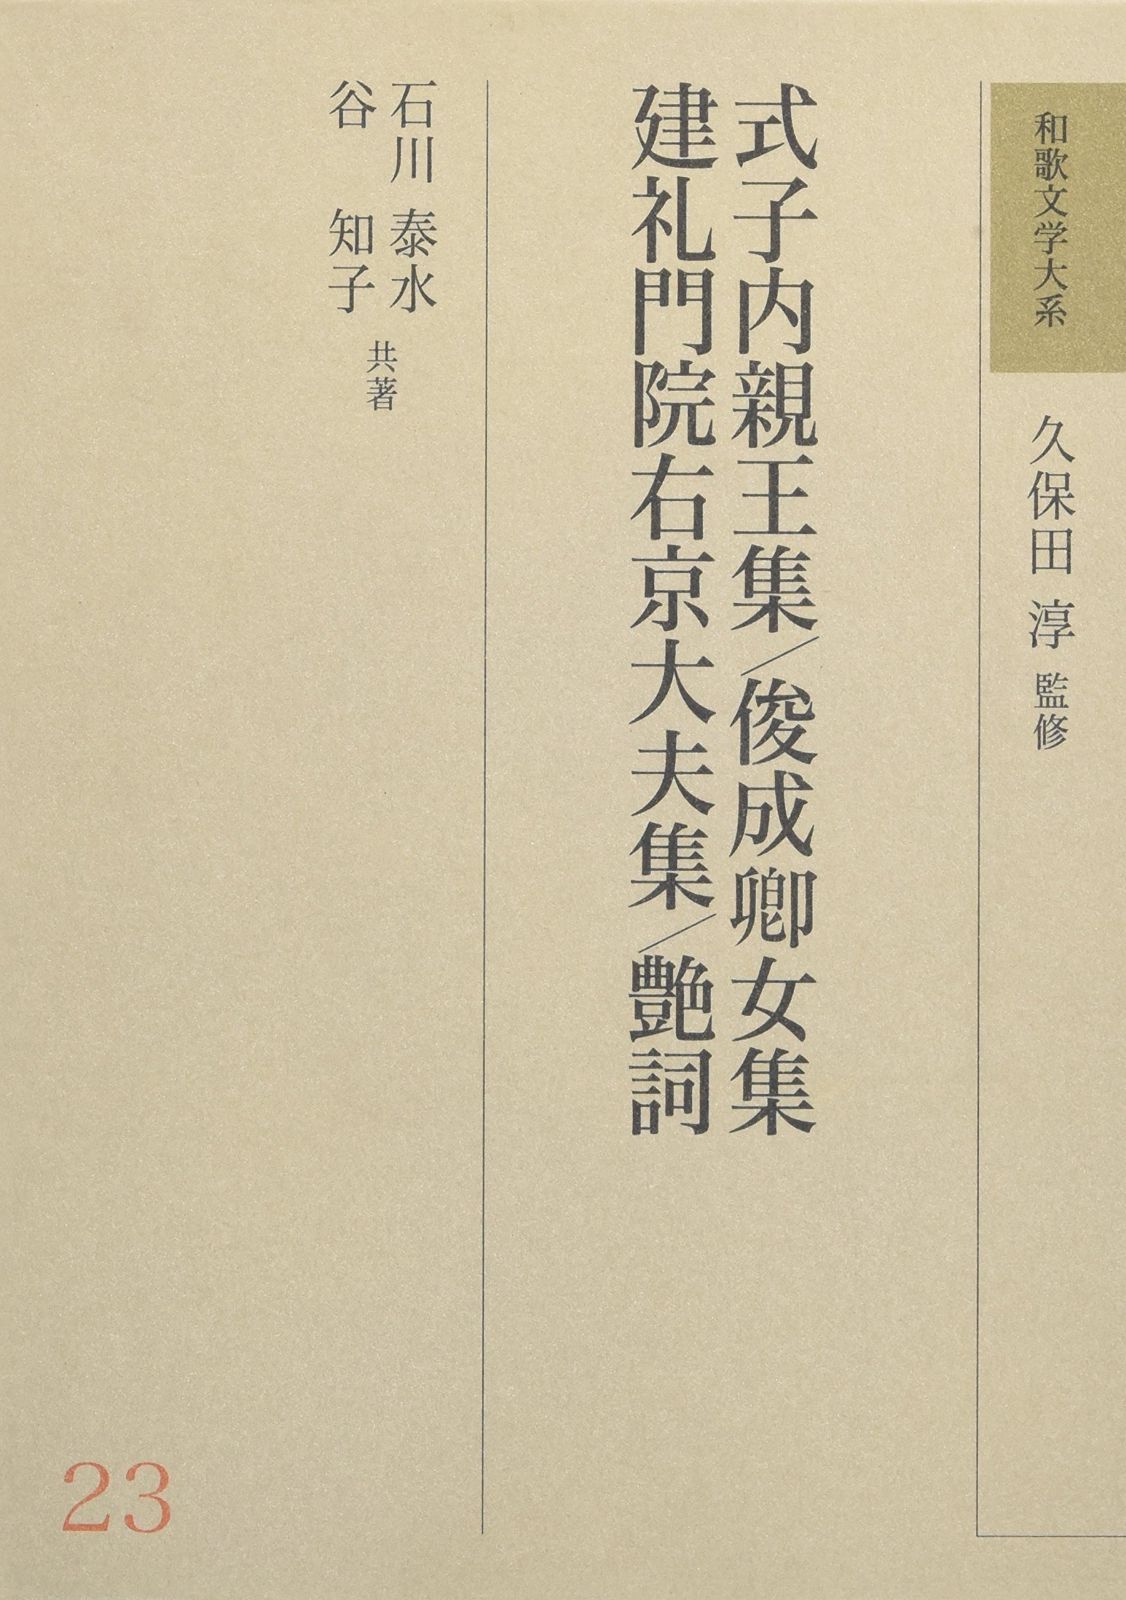 和歌文学大系
久保田 淳 監修
式子内親王集/俊成卿女集
建礼門院右京大夫集/艶詞
石川 泰水
谷 知子
共著
23